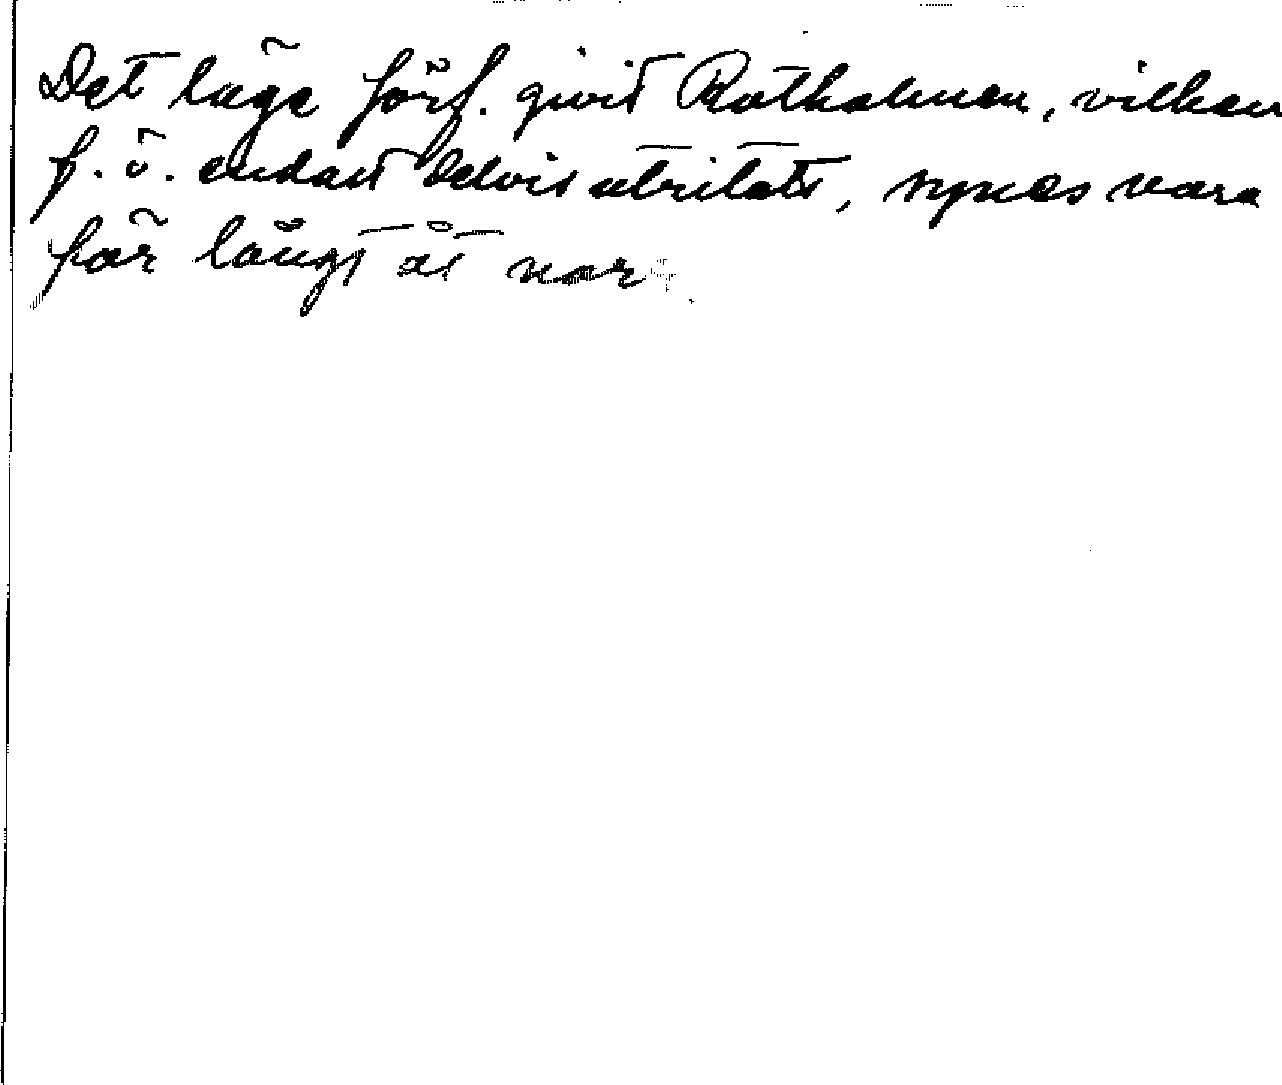 Det läge förf. givit Rotholmen, vilken
f. ö. endast delvis utritats, synes vara
för långt åt norr.